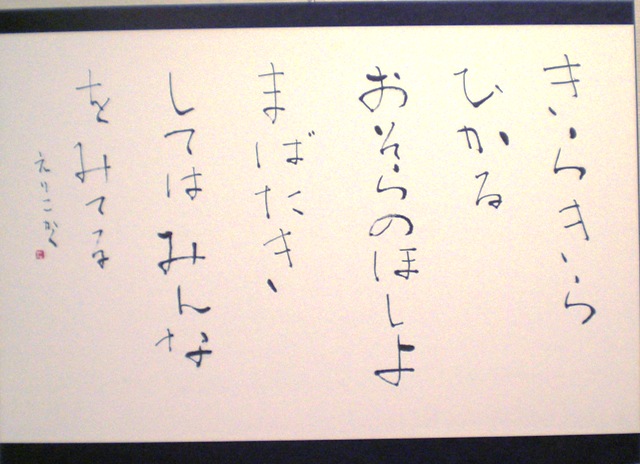 きらきら
ひかる
おそらのほしよ
まばたき
してはみんな
をみてる
えりこかく